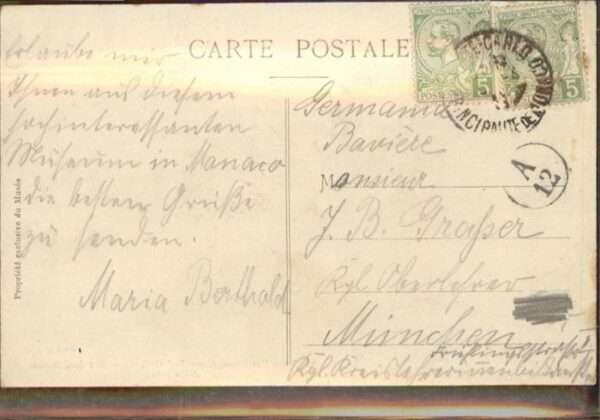 CARTE POSTALE
Erlaube mir
Ihnen aus diesem
hochinteressanten
Museum in Monaco
die besten Grüße
zu senden.
Maria Berthold
Propriété exclusive du Musée
5
5
MONTE-CARLO
PRINCIPAUTE DE MONACO
A
12
Germania
Bavière
Monsieur
J. B. Graßer
Kgl. Oberlehrer
München
Frühlingsstraße
Kgl. Kreislehrerinnen